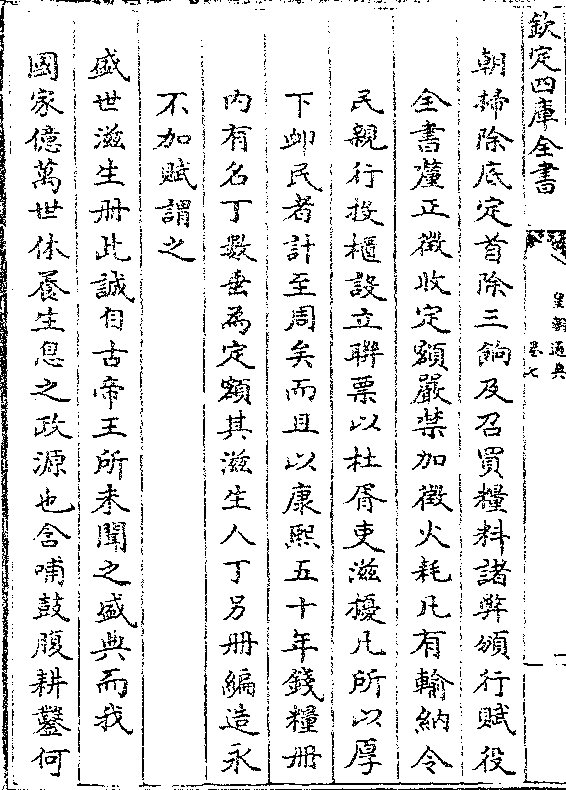 欽定四庫全書
皇朝通典
卷七
朝掃除底定首除三餉及召買糧料諸弊頒行賦役
全書釐正徴收定額嚴禁加徴火耗凡有輸納令
民親行投櫃設立聯票以杜胥吏滋擾凡所以厚
下卹民者計至周矣而且以康熙五十年錢糧册
内有名丁數垂為定額其滋生人丁另册編造永
不加賦謂之
盛世滋生册此誠自古帝王所未聞之盛典而我
國家億萬世休養生息之政源也含哺鼓腹耕鑿何